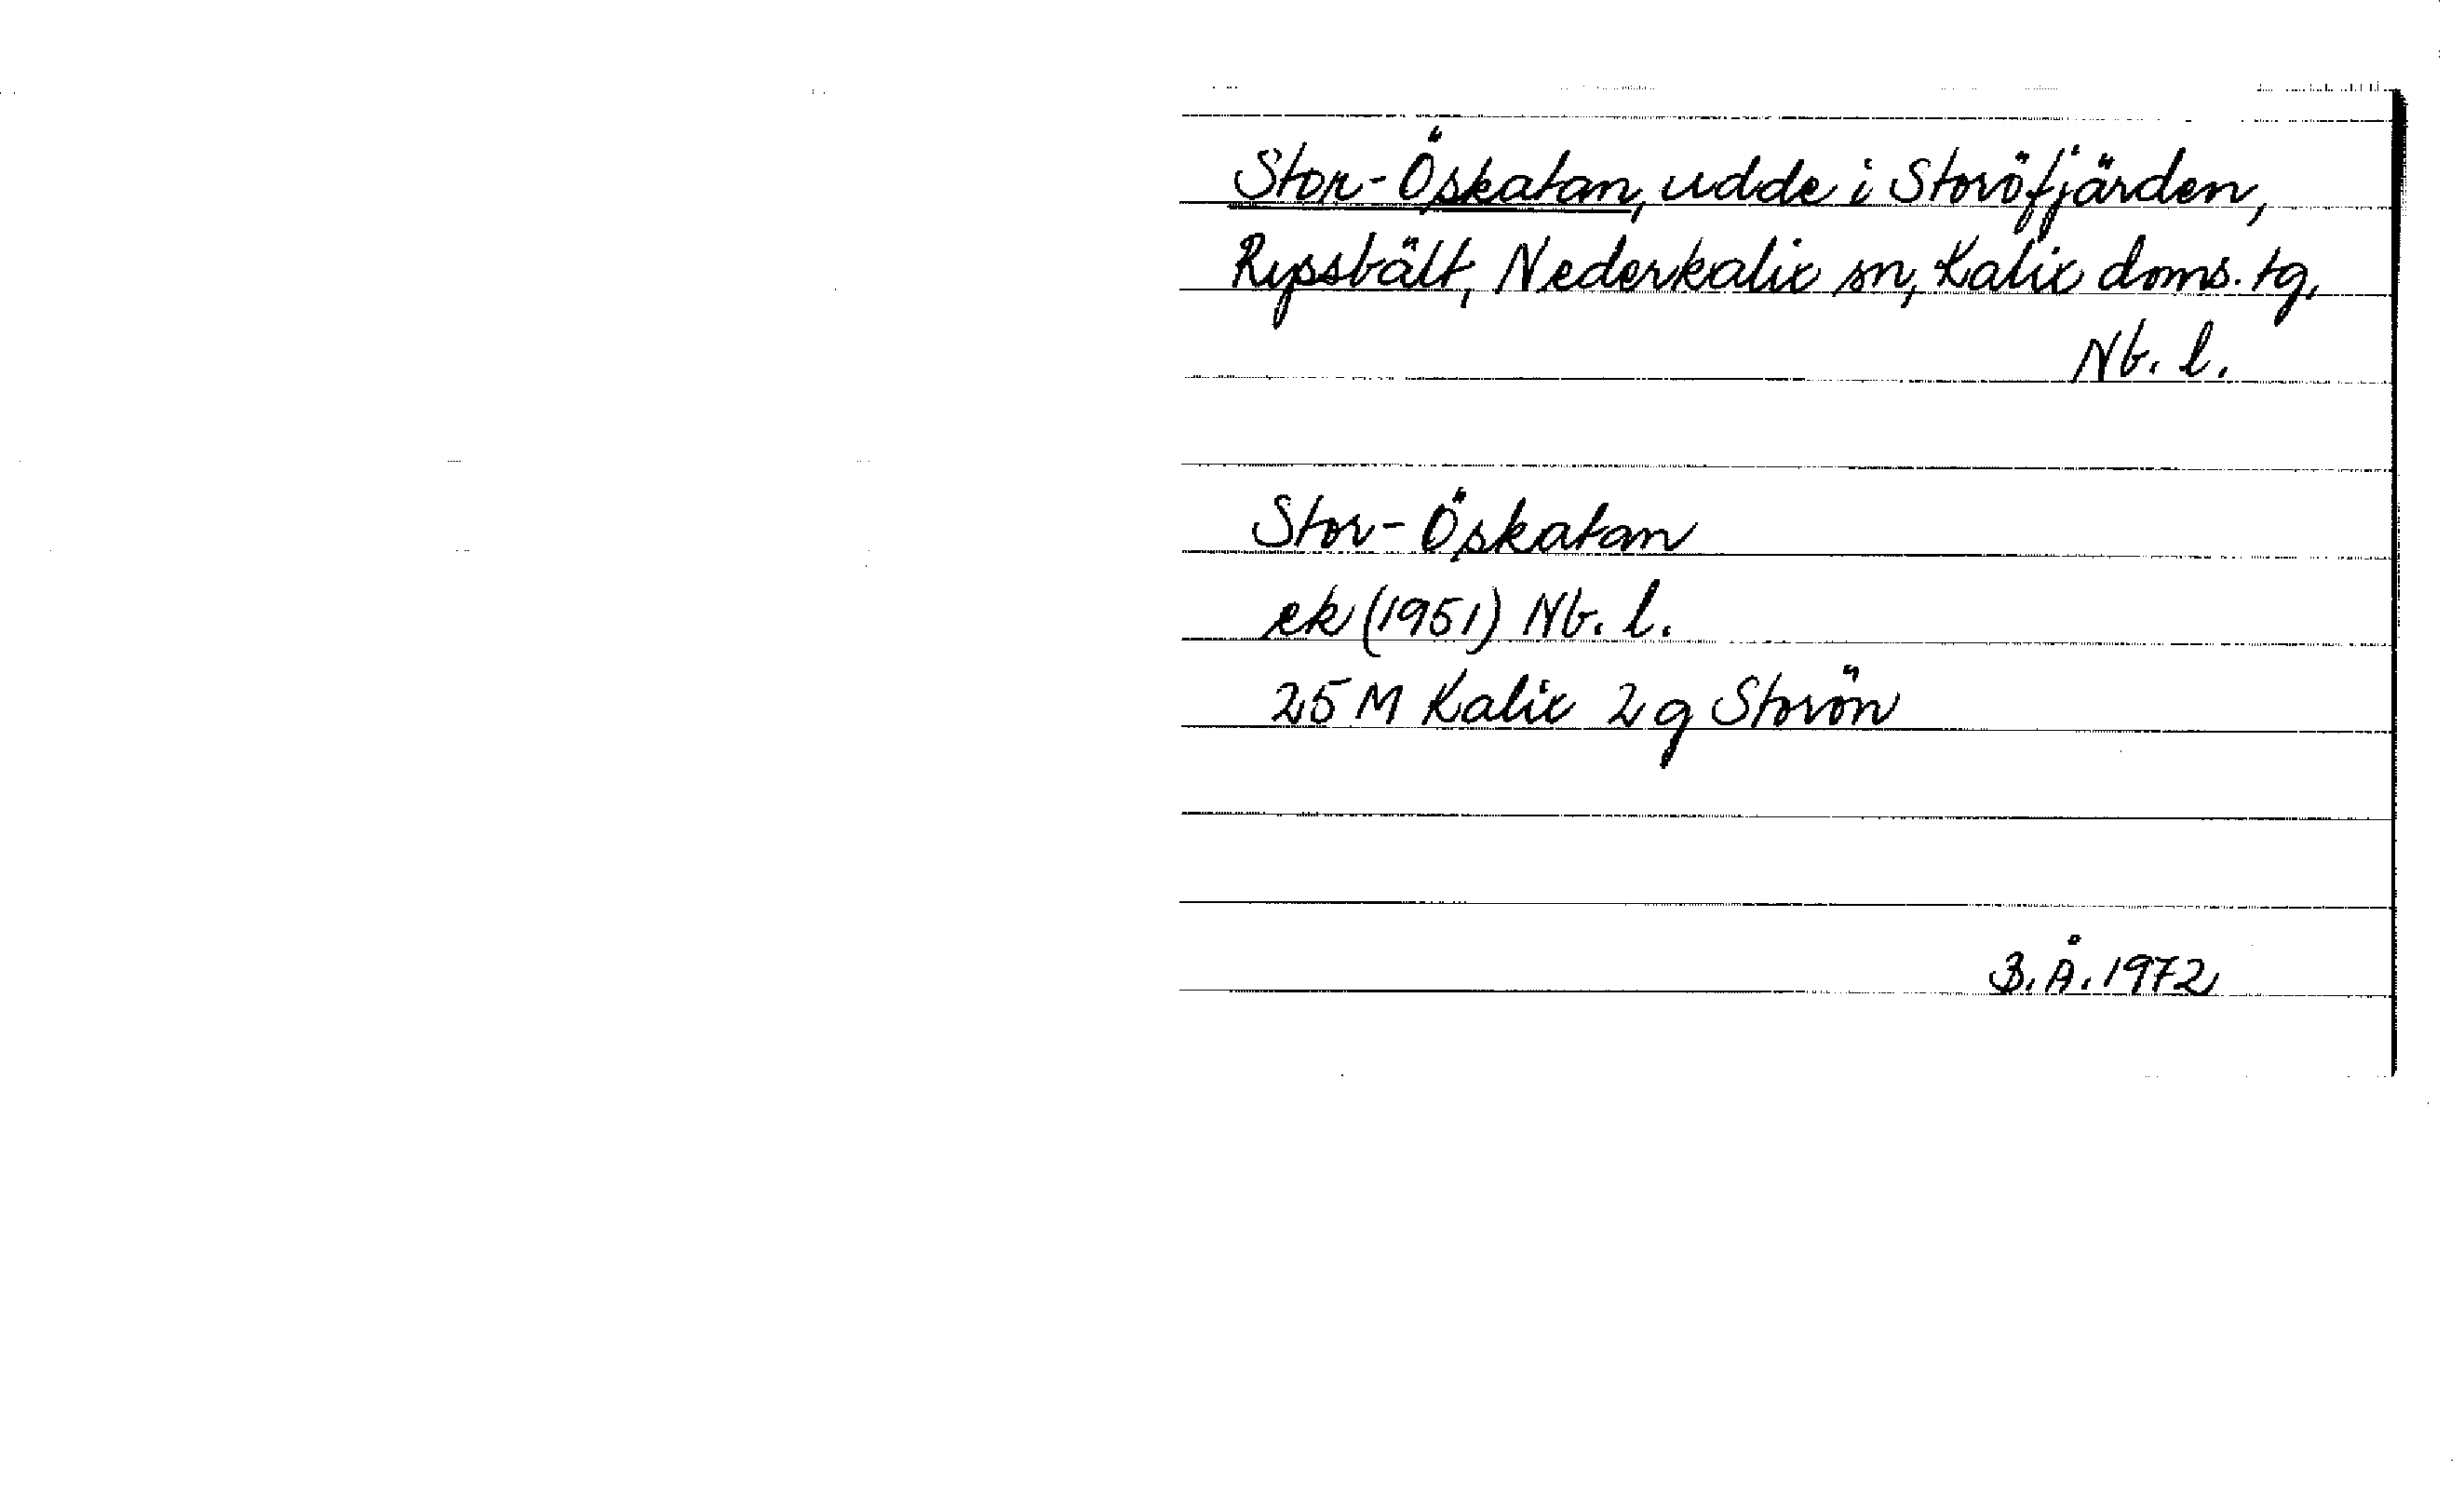 Stor-Öskatan, udde i Storöfjärden,
Ryssbält, Nederkalix sn, Kalix doms. tg,
Nb. l.
Stor-Öskatan
ek (1951) Nb. l.
25 M Kalix 2 g Storön
B. Å. 1972